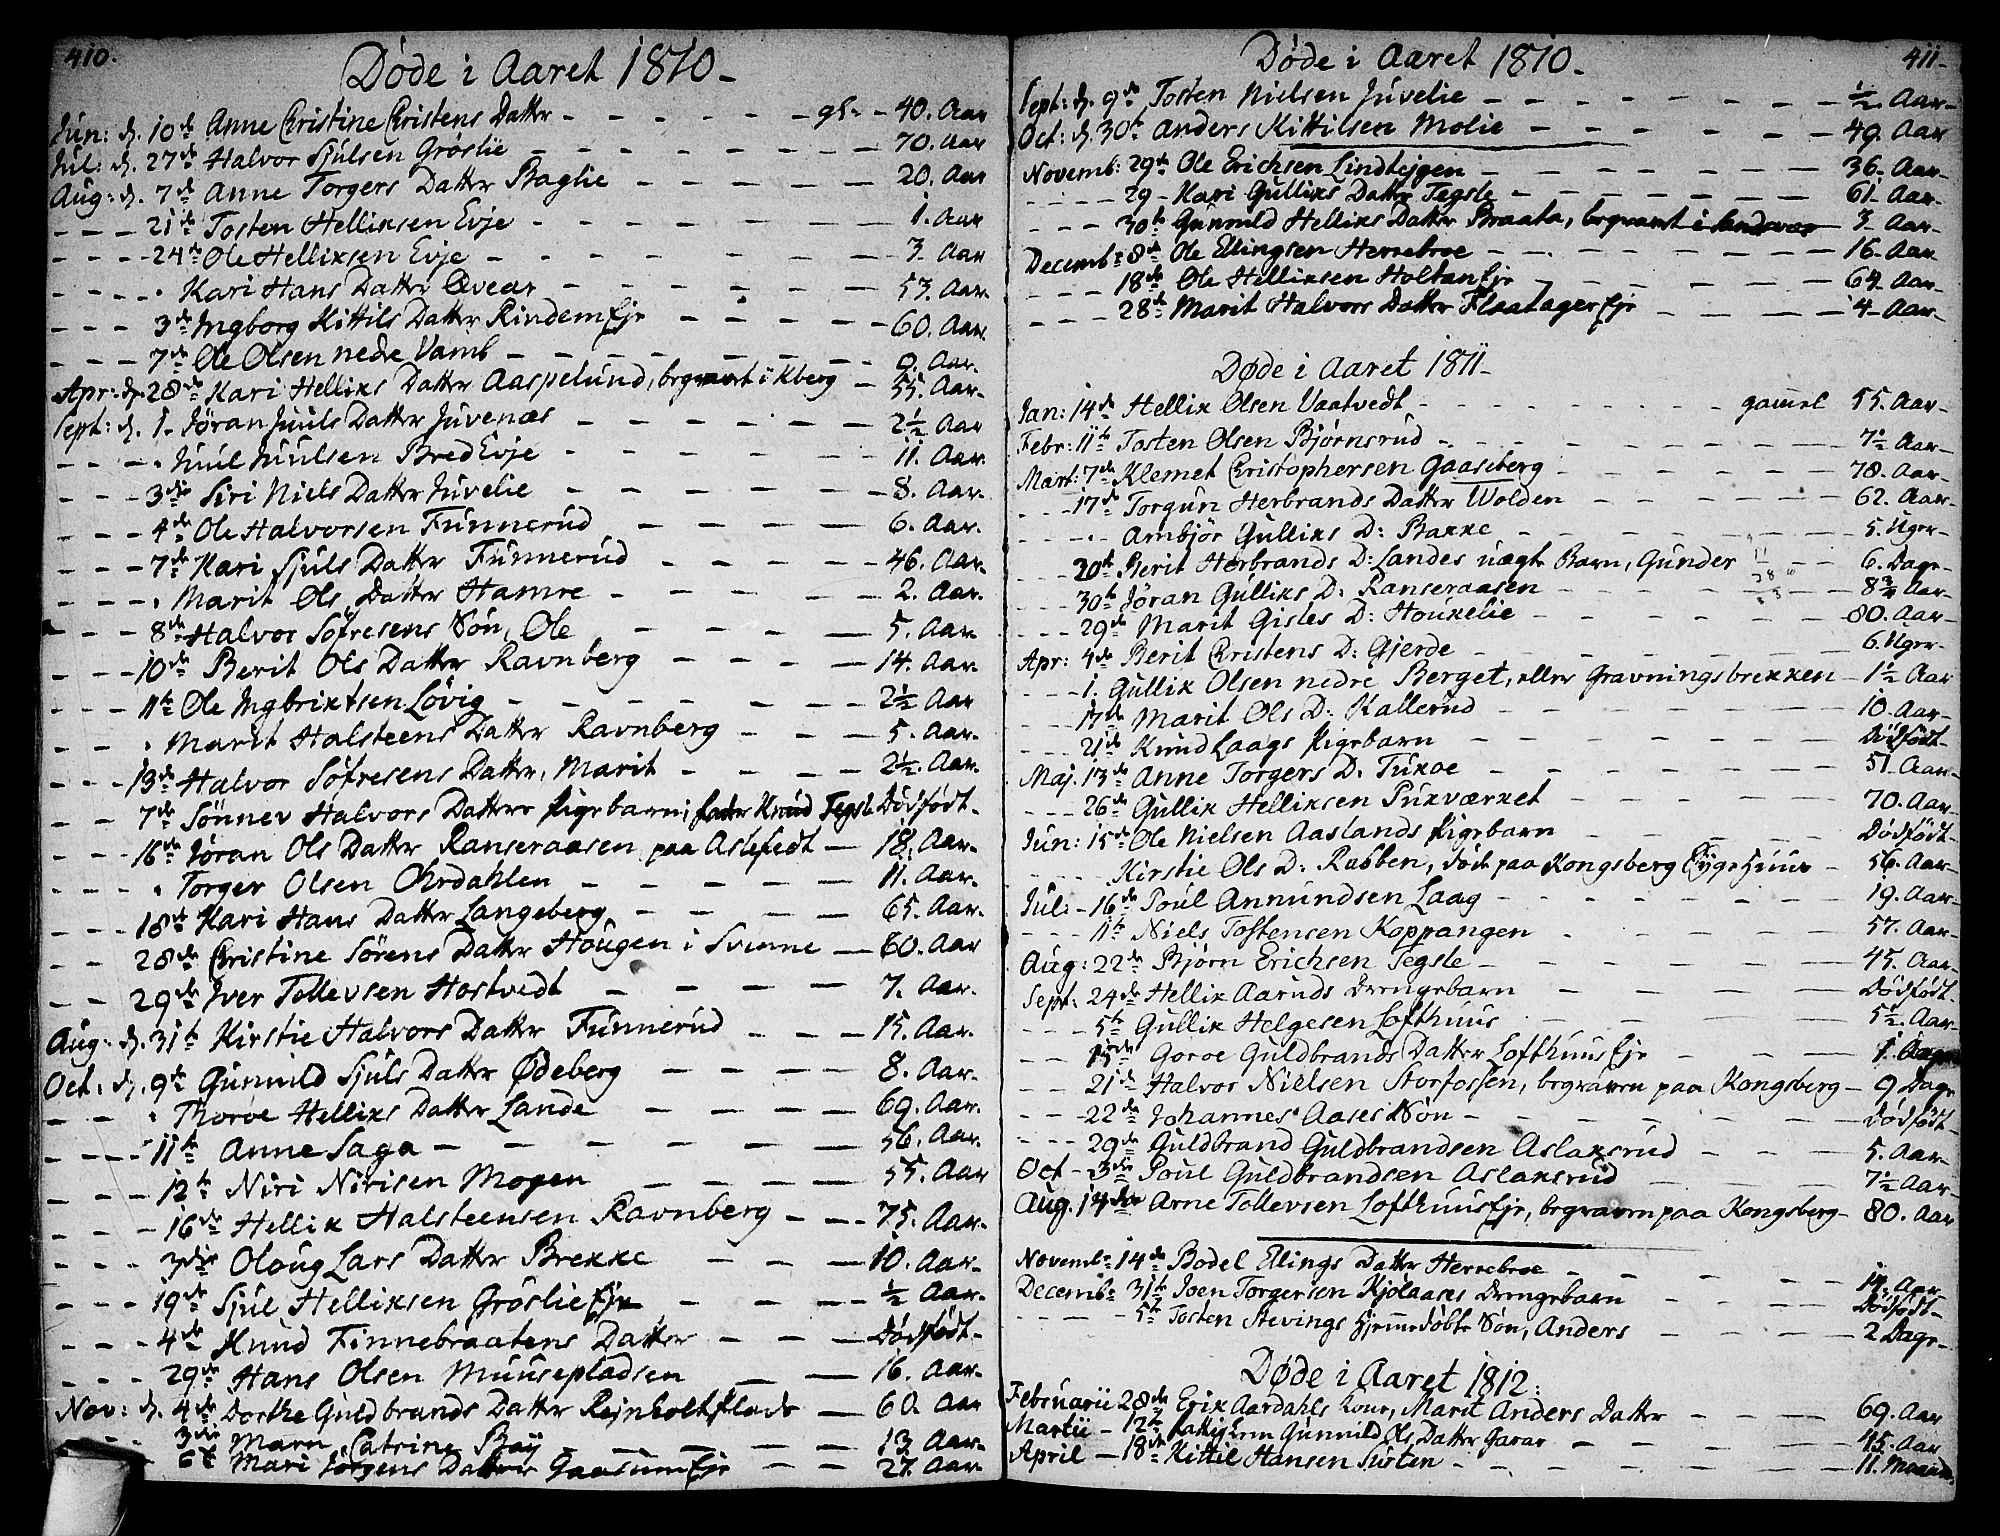 410.
Døde i Aaret 1810.
Jun: d. 10de Anne Christine Christens Datter gl. 40. Aar
Jul: d. 27de Halvor Sjulsen Gröslie 70. Aar
Aug: d. 7de Anne Torgers Datter Baglie 20. Aar
21de Tosten Helliksen Evje 1. Aar
24de Ole Helliksen Evje 3. Aar
Kari Hans Datter Qvear 53. Aar.
3de Ingborg Kittils Datter Rindem Eje 60. Aar.
7de Ole Olsen nedre Vamb 9. Aar.
Apr: d. 28de Kari Helliks Datter Aaspelund, begravet i Kberg 55. Aar.
Sept: d. 1. Jøran Juuls Datter Juvenæs 2½ Aar
Juul Juulsen Bred Evje 11. Aar.
3die Siri Niels Datter Juvelie 8. Aar.
4de Ole Halvorsen Funnerud 6. Aar.
7de Kari Sjuls Datter Funnerud 46. Aar.
Marit Ols Datter Hamre 2. Aar.
8de Halvor Söfresens Sön, Ole 5. Aar.
10de Berit Ols Datter Ravnberg 14. Aar.
11te Ole Ingbriktsen Lövig 2½ Aar
Marit Halsteens Datter Ravnberg 5. Aar.
13de Halvor Söfresens Datter, Marit 2½. Aar.
7de Sönnev Halvors Datters Pigebarn; fader Knud Tegsle Dödfödt.
16de Jøran Ols Datter Ranseraasen paa Aslefedt 18. Aar.
Torger Olsen Ohrdahlen 11. Aar.
18de Kari Hans Datter Langeberg 65. Aar.
28de Christine Sörens Datter Hougen i Svenne 60. Aar
29de Iver Tollevsen Hostvedt 7. Aar.
Aug. d. 31te Kirstie Halvors Datter Funnerud 15. Aar.
Oct. d. 9de Gunnild Sjuls Datter Ødeberg 8. Aar.
Thoroe Helliks Datter Lande 69. Aar.
11te Anne Saga 56. Aar.
12te Niri Nirisen Mogen 55. Aar
16de Hellik Halsteensen Ravnberg 75. Aar.
3die Oloug Lars Datter Brekke 10. Aar.
19de Sjul Helliksen Gröslie Eje ½ Aar.
4de Knud Finnebraatens Datter Dödfödt.
29de Hans Olsen Muusepladsen 16. Aar.
Nov: d. 4de Dorthe Guldbrands Datter Rejnholtplads 60. Aar
3die Marn Catrine Bay 13 Aar.
6te Mari Jörgens Datter Gaasum Eje 27. Aar.
411.
Døde i Aaret 1810.
Sept: d. 9de Tosten Nielsen Juvelie ½ Aar.
Oct: d. 30te Anders Kittilsen Molie 49. Aar
Novemb: 29de Ole Erichsen Lindtejgen 36. Aar.
29 Kari Gulliks Datter Tegsle 61. Aar.
30te Gunnild Helliks Datter Braata, begravet i Sandsvær 3. Aar.
Decemb: 8de Ole Ellingsen Herrebroe 16. Aar.
18de Ole Helliksen Holtan Eje 64. Aar.
28de Marit Halvors Datter Flaatager Eje 4. Aar.
Døde i Aaret 1811.
Jan: 14de Hellik Olsen Vaatvedt gammel 55. Aar.
Febr: 11te Tosten Olsen Bjørnsrud 7½ Aar.
Mart: 7de Klemet Christophersen Gaaseberg 78. Aar.
17de Torgun Herbrands Datter Wolden 62. Aar.
Ambjör Gulliks D: Bakke 5. Uger.
20de Berit Herbrands D: Landes uægte Barn, Gunder 6. Dage.
30te Jøran Gulliks D: Ranseraasen 8¾ Aar.
29de Marit Gisles D: Houkelie 80. Aar.
Apr: 4de Berit Christens D: Gjerde 6. Uger.
1. Gullik Olsen nedre Berget, eller Gravningsbrekken 1½ Aar
17de Marit Ols D: Kallerud 10. Aar.
21de Knud Laags Pigebarn Dödfödt.
Maj. 13de Anne Torgers D. Tukoe 51. Aar.
26de Gullik Helliksen Pukværket 70. Aar.
Jun: 15de Ole Nielsen Aaslands Pigebarn Dødfødt.
Kirstie Ols D: Rubben, död paa Kongsberg Sygehuus 56. Aar.
Jul: 16de Poul Anmundsen Laag 19. Aar.
11te Niels Tostensen Koppangen 57. Aar.
Aug: 22de Bjørn Erichsen Tegsle 45. Aar.
Sept: 24de Hellik Aaruds Drengebarn Dödfödt.
5te Gullik Helgesen Lofthuus 5½. Aar.
15de Goroe Guldbrands Datter Lofthuus Eje 1.
21de Halvor Nielsen Storfossen, begraven paa Kongsberg 9 Dage
22de Johannes Aases Sön Dødfødt.
29de Guldbrand Guldbrandsen Aslaksrud 5. Aar.
Oct 3die Poul Guldbrandsen Aslaksrud 7½ Aar.
Aug. 14de Arne Tollevsen Lofthuus Eje, begraven paa Kongsberg 80. Aar
Novemb: 14de Bodel Elings Datter Herrebroe 14. Aar.
Decemb: 31te Joen Torgersen Kjölaases Drengebarn Dödfödt.
5te Tosten Stevings hjemmedöbte Sön, Anders 2 Dage.
Døde i Aaret 1812.
Februarii 28de Erik Aardahls Kone, Marit Anders Datter 69. Aar
Martii 12te Gunnild Ols Datter Garar 45. Aar
April 18de Kittil Hansen Susten 11. Maaned.